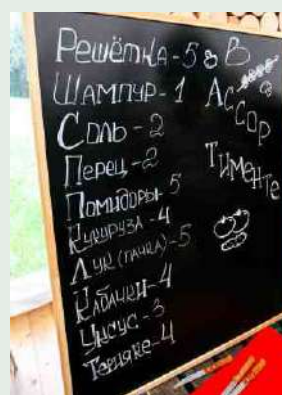 Решётка - 5
Шампур - 1
Соль - 2
Перец - 2
Помидоры - 5
Кукуруза - 4
Лук (пачка) - 5
Кабачки - 4
Уксус - 3
Терияке - 4
В
Ассор
Тименте